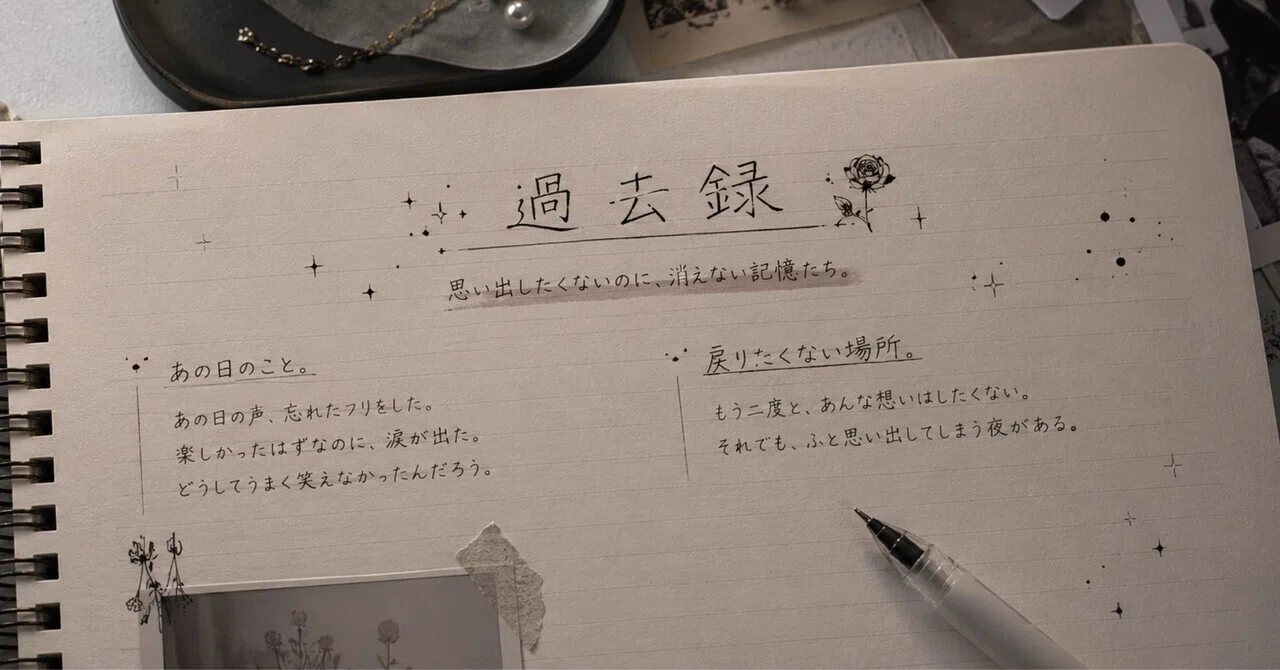 過去録
思い出したくないのに、消えない記憶たち。
あの日のこと。
あの日の声、忘れたフリをした。
楽しかったはずなのに、涙が出た。
どうしてうまく笑えなかったんだろう。
戻りたくない場所。
もう二度と、あんな想いはしたくない。
それでも、ふと思い出してしまう夜がある。